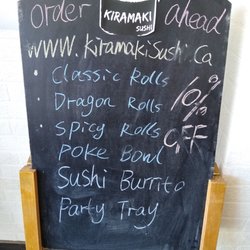 order ahead
KIRAMAKI
SUSHI
www.KiramakiSushi.Ca
Classic Rolls
Dragon Rolls
Spicy Rolls
Poke Bowl
Sushi Burrito
Party Tray
10%
OFF